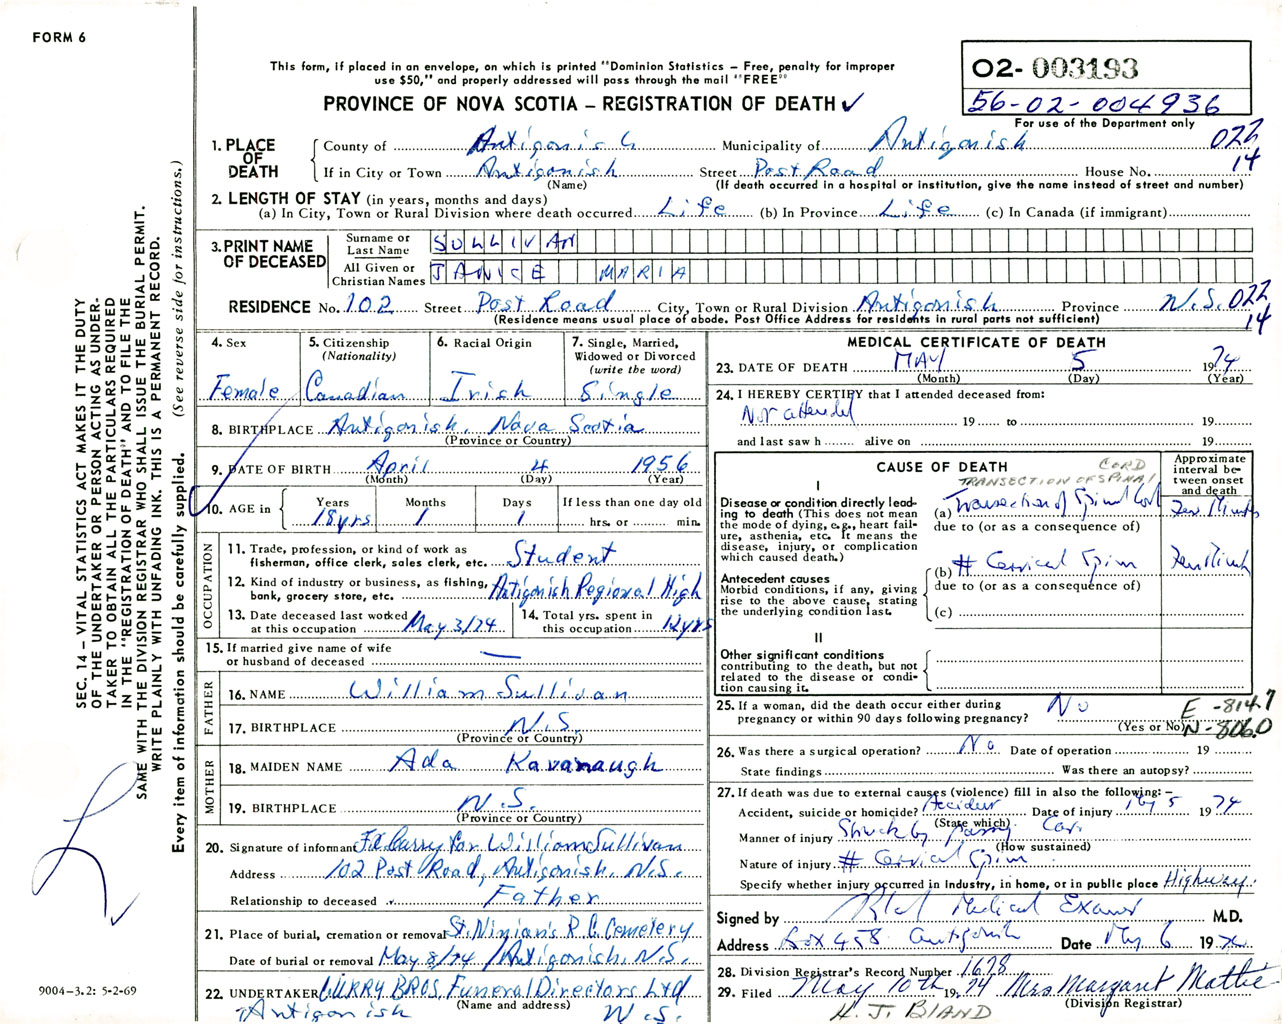 FORM 6
This form, if placed in an envelope, on which is printed "Dominion Statistics – Free, penalty for improper
use $50," and properly addressed will pass through the mail "FREE"
PROVINCE OF NOVA SCOTIA – REGISTRATION OF DEATH ✓
02- 003193
56-02-004936
For use of the Department only
022
14
1. PLACE OF DEATH County of Antigonish Municipality of Antigonish
If in City or Town Antigonish Street Post Road House No.
(Name) (If death occurred in a hospital or institution, give the name instead of street and number)
2. LENGTH OF STAY (in years, months and days)
(a) In City, Town or Rural Division where death occurred Life (b) In Province Life (c) In Canada (if immigrant)
3. PRINT NAME OF DECEASED Surname or Last Name SULLIVAN
All Given or Christian Names JANICE MARIA
RESIDENCE No. 102 Street Post Road City, Town or Rural Division Antigonish Province N.S. 022
(Residence means usual place of abode. Post Office Address for residents in rural parts not sufficient) 14
4. Sex Female
5. Citizenship (Nationality) Canadian
6. Racial Origin Irish
7. Single, Married, Widowed or Divorced (write the word) Single
8. BIRTHPLACE Antigonish, Nova Scotia
(Province or Country)
9. DATE OF BIRTH April 4 1956
(Month) (Day) (Year)
10. AGE in Years Months Days If less than one day old
18yrs 1 1 hrs. or min.
OCCUPATION
11. Trade, profession, or kind of work as
fisherman, office clerk, sales clerk, etc. Student
12. Kind of industry or business, as fishing,
bank, grocery store, etc. Antigonish Regional High
13. Date deceased last worked
at this occupation May 3/74
14. Total yrs. spent in
this occupation 12yrs
15. If married give name of wife
or husband of deceased —
FATHER
16. NAME William Sullivan
17. BIRTHPLACE N.S.
(Province or Country)
MOTHER
18. MAIDEN NAME Ada Kavanaugh
19. BIRTHPLACE N.S.
(Province or Country)
20. Signature of informant Curry for William Sullivan
Address 102 Post Road, Antigonish, N.S.
Relationship to deceased Father
21. Place of burial, cremation or removal St. Ninian's R.C. Cemetery
Date of burial or removal May 8/74 Antigonish, N.S.
22. UNDERTAKER CURRY BROS. Funeral Directors Ltd
(Name and address)
Antigonish N.S.
MEDICAL CERTIFICATE OF DEATH
23. DATE OF DEATH MAY 5 1974
(Month) (Day) (Year)
24. I HEREBY CERTIFY that I attended deceased from:
Not attended 19 to 19
and last saw h alive on 19
CAUSE OF DEATH
Approximate interval between onset and death
CORD
TRANSECTION OF SPINAL
I
Disease or condition directly leading to death (This does not mean
the mode of dying, e.g., heart failure, asthenia, etc. It means the
disease, injury, or complication
which caused death.)
(a) Transection of Spinal Cord
due to (or as a consequence of)
Antecedent causes
Morbid conditions, if any, giving
rise to the above cause, stating
the underlying condition last.
(b) # Cervical Spine
due to (or as a consequence of)
(c)
II
Other significant conditions
contributing to the death, but not
related to the disease or condition causing it.
25. If a woman, did the death occur either during
pregnancy or within 90 days following pregnancy? No
(Yes or No)
E -814.7
N-806.0
26. Was there a surgical operation? No Date of operation 19
State findings Was there an autopsy?
27. If death was due to external causes (violence) fill in also the following: –
Accident, suicide or homicide? Accident Date of injury May 5 1974
(State which)
Manner of injury Struck by passing Car
(How sustained)
Nature of injury # Cervical Spine
Specify whether injury occurred in industry, in home, or in public place Highway
Signed by Medical Examr M.D.
Address Box 458 Antigonish Date May 6 1974
28. Division Registrar's Record Number 1678
29. Filed May 10th 1974 Mrs Margaret Mattie
(Division Registrar)
H. J. BLAND
SEC. 14 – VITAL STATISTICS ACT MAKES IT THE DUTY
OF THE UNDERTAKER OR PERSON ACTING AS UNDER-
TAKER TO OBTAIN ALL THE PARTICULARS REQUIRED
IN THE "REGISTRATION OF DEATH" AND TO FILE THE
SAME WITH THE DIVISION REGISTRAR WHO SHALL ISSUE THE BURIAL PERMIT.
WRITE PLAINLY WITH UNFADING INK. THIS IS A PERMANENT RECORD.
Every item of information should be carefully supplied. (See reverse side for instructions.)
9004–3.2: 5-2-69